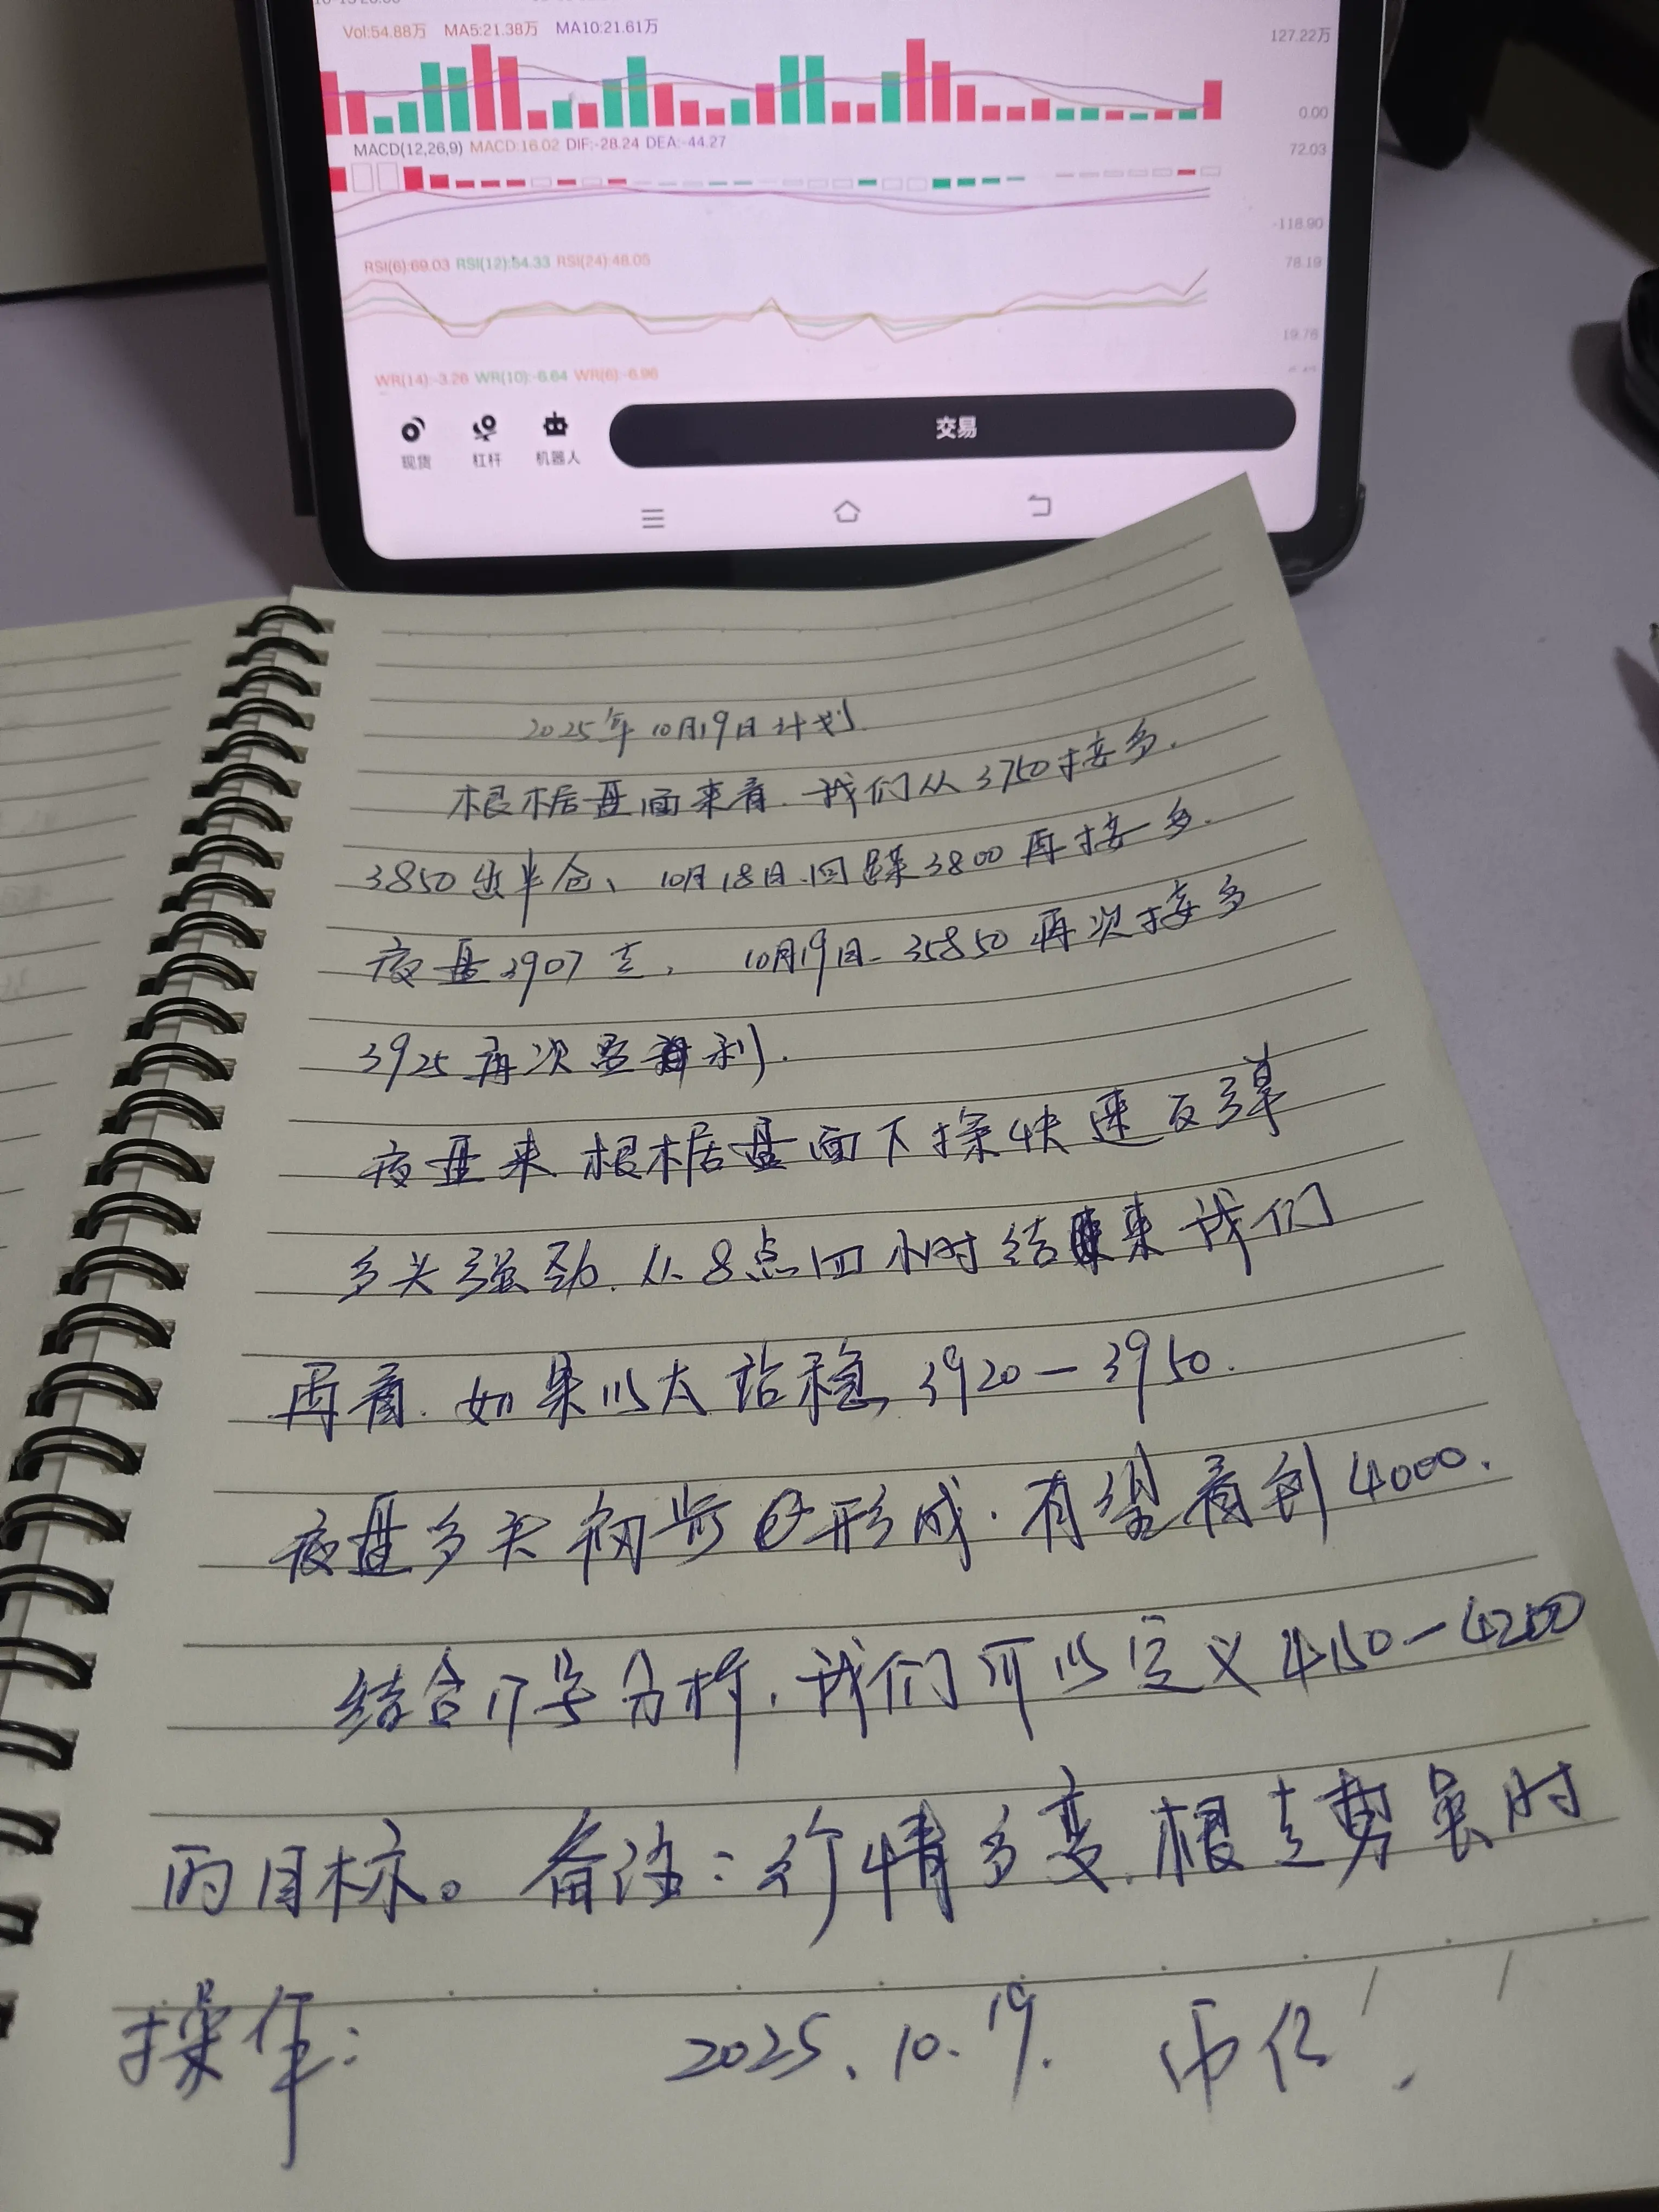 Vol:54.88万 MA5:21.38万 MA10:21.61万
127.22万
0.00
MACD(12,26,9) MACD:16.02 DIF:-28.24 DEA:-44.27
72.03
-118.90
RSI(6):69.03 RSI(12):54.33 RSI(24):48.05
78.19
19.76
WR(14):-3.26 WR(10):-6.64 WR(6):-6.96
现货 杠杆 机器人 交易
2025年10月19日计划
根据盘面来看.我们从3750接多.
3850出半仓、10月18日.回踩3800再接多.
夜盘3907走. 10月19日-35850再次接多
3925再次盈利.
夜盘来根据盘面下探快速反弹
多头强劲.从8点四小时结束来我们
再看.如果以太站稳3920-3950.
夜盘多头初步形成.有望看到4000.
结合17号分析.我们可以定义4150-4200
的目标。备注:行情多变.根走势实时
操作: 2025.10.19. 币亿